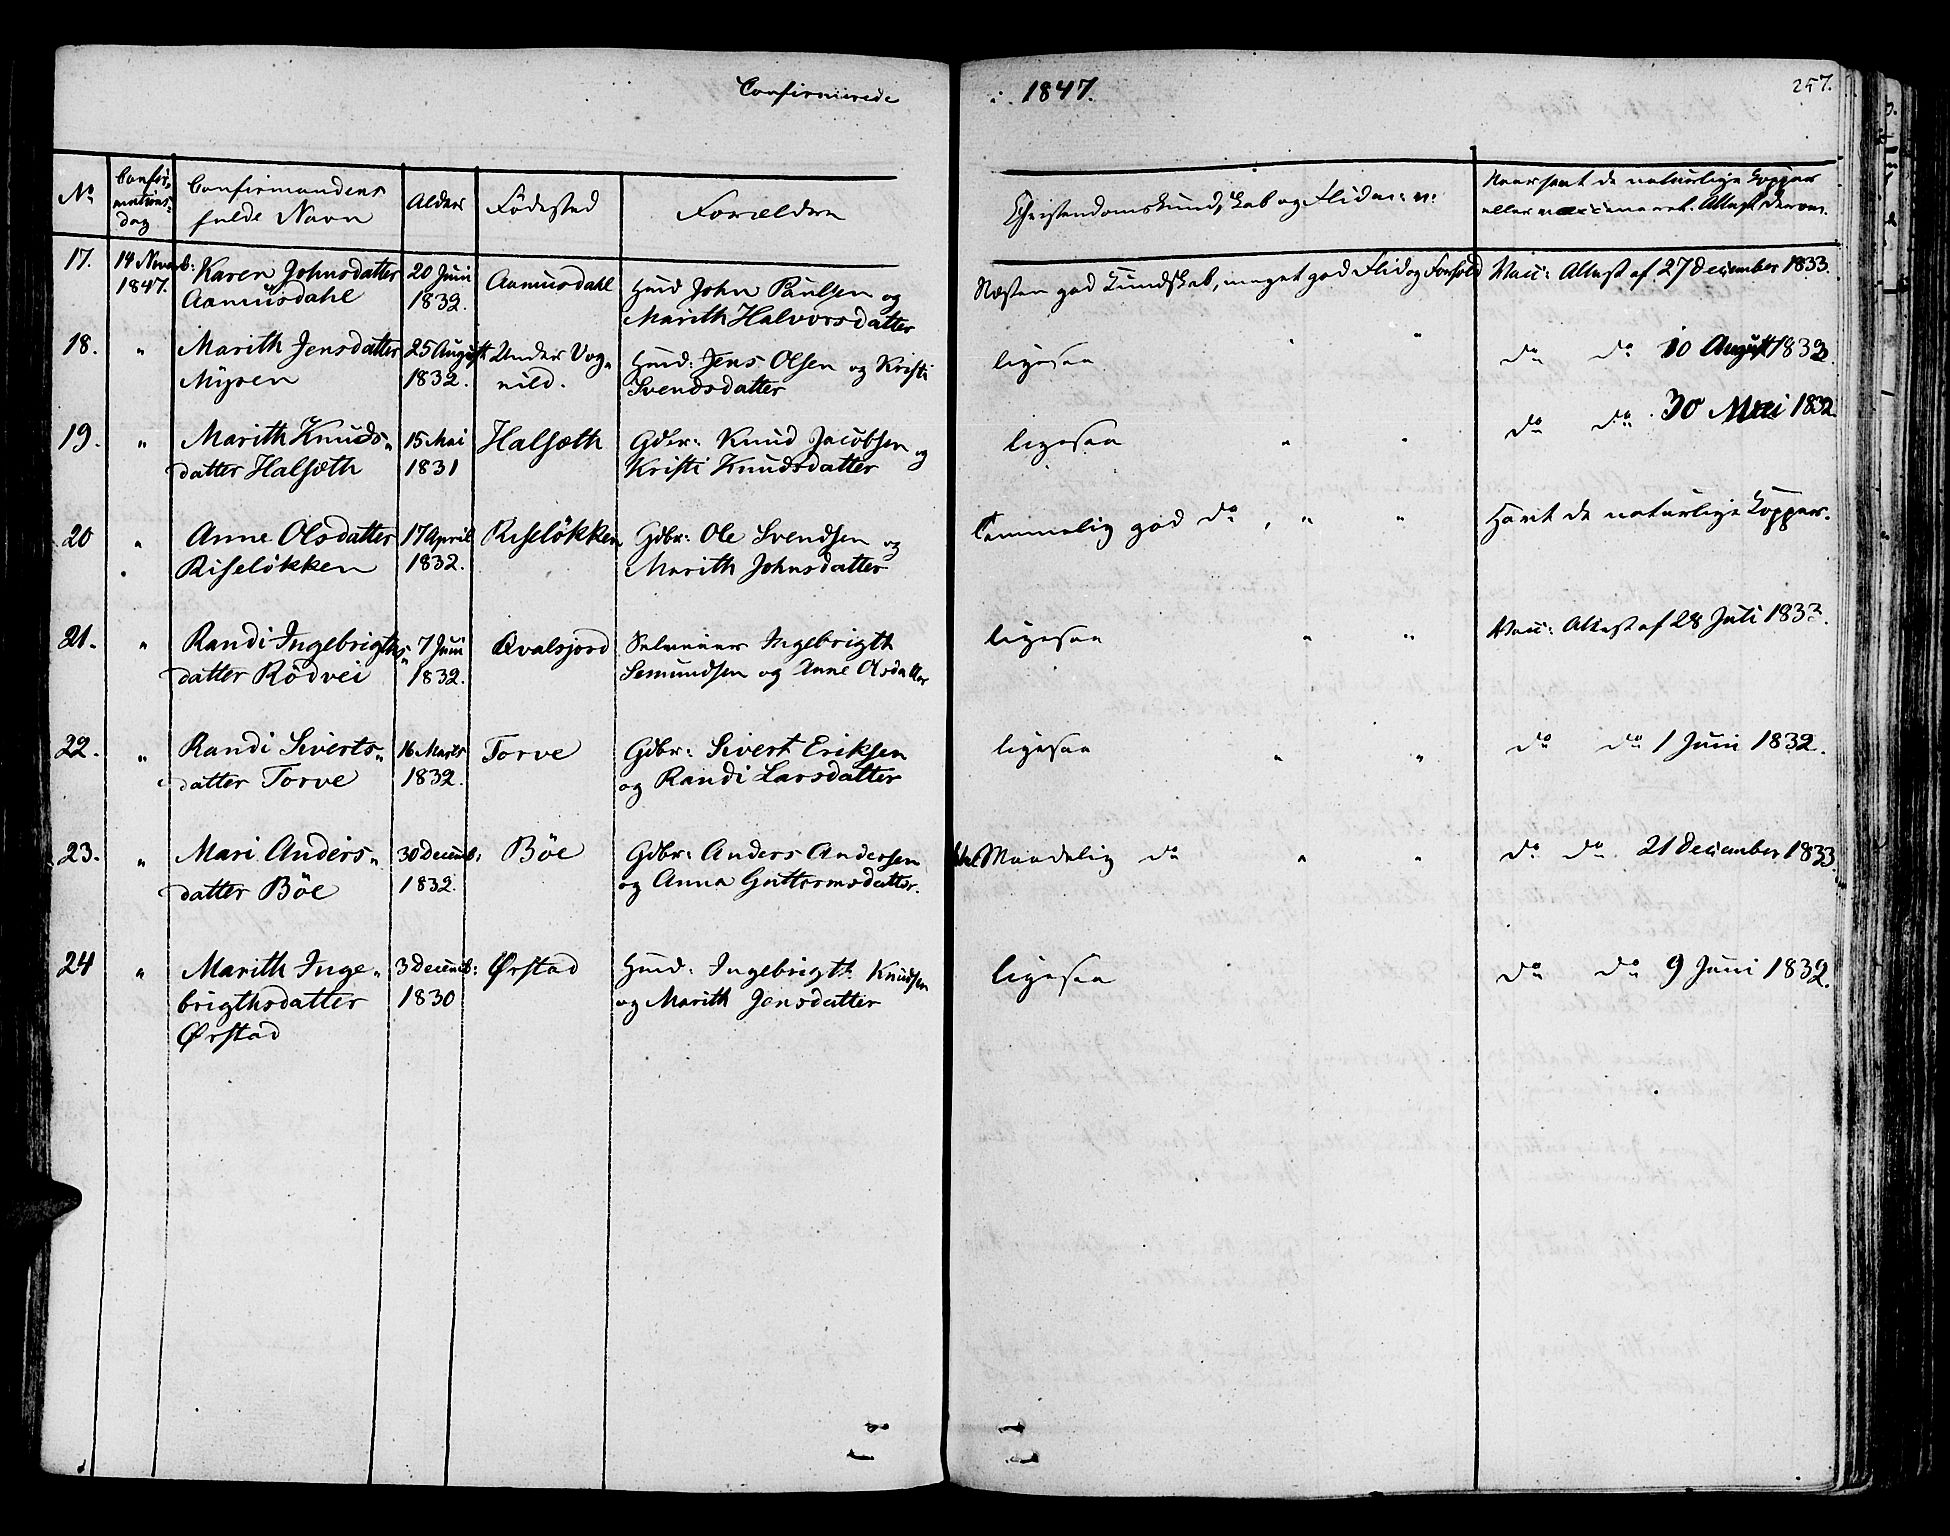 Confirmerede i 1847. 257.
No Confirmations-dag Confirmandens fulde Navn Alder Födested Forældre Christendomskundskab og Flid m: v: Naar havt de naturlige Kopper eller vaccineret. Attest derom.
17. 14 Novemb: Karen Johnsdatter 20 Juni Aamusdahl Huusm John Paulsen og Næsten god Kundskab, meget god Flid og Forhold Vacc: Attest af 27 December 1833.
1847. Aamusdahl 1832. Marith Halvorsdatter
18. " Marith Jensdatter 25 August Under Vog- Huusm: Jens Olsen og Kristi ligesaa " " do do 10 August 1832.
Myren 1832. nild. Svendsdatter
19. " Marith Knuds- 15 Mai Halsæth Gdbr: Knud Jacobsen og ligesaa " " do do 30 Mai 1832
datter Halsæth 1831 Kristi Knudsdatter
20 " Anne Olsdatter 17 April Riselökken Gdbr: Ole Svendsen og Temmelig god do, " " Havt de naturlige Kopper.
Riselökken 1832. Marith Johnsdatter
21. " Randi Ingebrigths- 7 Juni Qvalsjord Selveier Ingebrigth ligesaa " " Vacc: Attest af 28 Juli 1833.
datter Rödvei 1832. Semundsen og Anne Olsdatter
22. " Randi Siverts- 16 Marts Torve Gdbr: Sivert Eriksen ligesaa " " do do 1 Juni 1832.
datter Torve 1832. og Randi Larsdatter
23. " Mari Anders- 30 Decemb: Böe Gdbr: Anders Andersen Maadelig do " " do do 21 December 1833.
datter Böe 1832. og Anna Guttormsdatter.
24 " Marith Inge- 3 Decemb: Ørstad Huusm: Ingebrigt Knudsen ligesaa do do 9 Juni 1832.
brigthsdatter 1830 og Marith Jensdatter
Ørstad